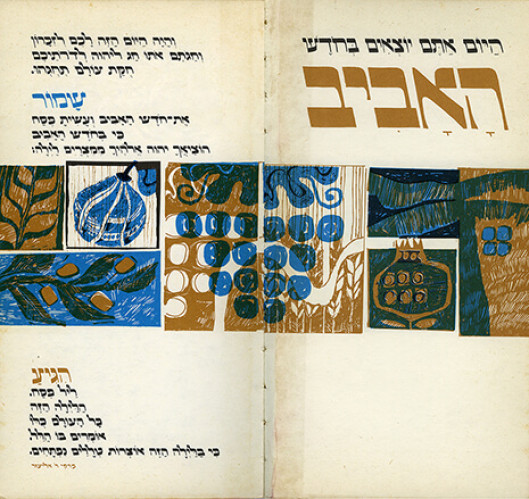 היום אתם יוצאים בחודש
הָאָבִיב
והיה היום הזה לכם לזכרון
וחגתם אתו חג ליהוה לדרתיכם
חקת עולם תחגהו.
שָמור
את־חדש האביב ועשית פסח
כי בחדש האביב
הוציאך יהוה אלהיך ממצרים לילה:
הגיע
ליל פסח.
הלילה הזה
כל העולם כלו
אומרים בו הלל
כי בלילה הזה אוצרות טללים נפתחים.
פרקי ר׳ אליעזר